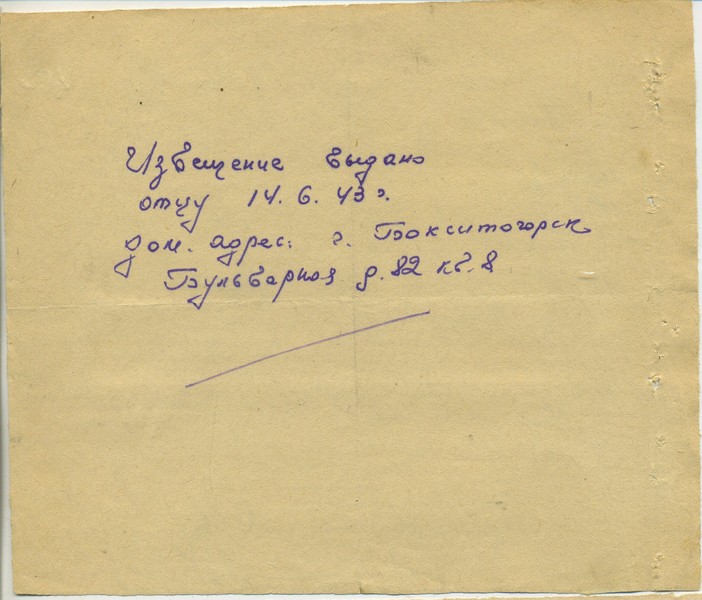 Извещение выдано
отцу 14. 6. 43 г.
дом. адрес: г. Бокситогорск
Бульварная д. 82 кв. 8